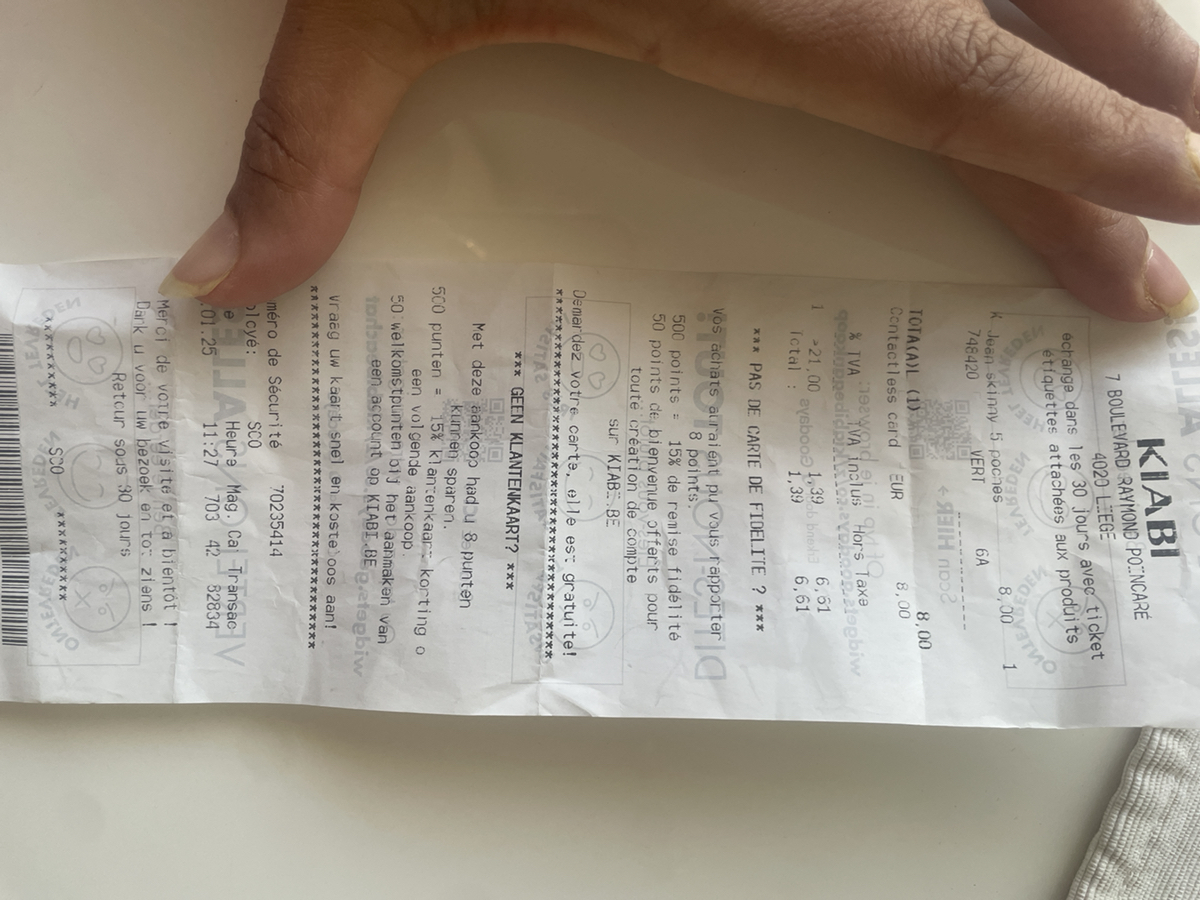 KIABI
7 BOULEVARD RAYMOND POINCARÉ
4020 LIEGE
échange dans les 30 jours avec ticket
étiquettes attachées aux produits
K Jean skinny 5 poches 8,00 1
748420 VERT 6A
TOTA(A)L (1) 8,00
Contactless card EUR 8,00
% TVA TVA inclus Hors Taxe
1 >21,00 1,39 6,61
Total : 1,39 6,61
*** PAS DE CARTE DE FIDELITE ? ***
Vos achats auraient pu vous rapporter
8 points.
500 points = 15% de remise fidélité
50 points de bienvenue offerts pour
toute création de compte
sur KIABI.BE
Demandez votre carte, elle est gratuite!
** GEEN KLANTENKAART? ***
Met deze aankoop had u 8 punten
kunnen sparen.
500 punten = 15% klantenkaart korting o
een volgende aankoop.
50 welkomstpunten bij het aanmaken van
een account op KIABI.BE
Vraag uw kaart snel en kosteloos aan!
méro de Sécurité 70235414
ployé: SCO
e Heure Mag. Cai Transac
.01.25 11:27 703 42 82834
Merci de votre visite et à bientôt !
Dank u voor uw bezoek en tot ziens !
Retour sous 30 jours
SCO